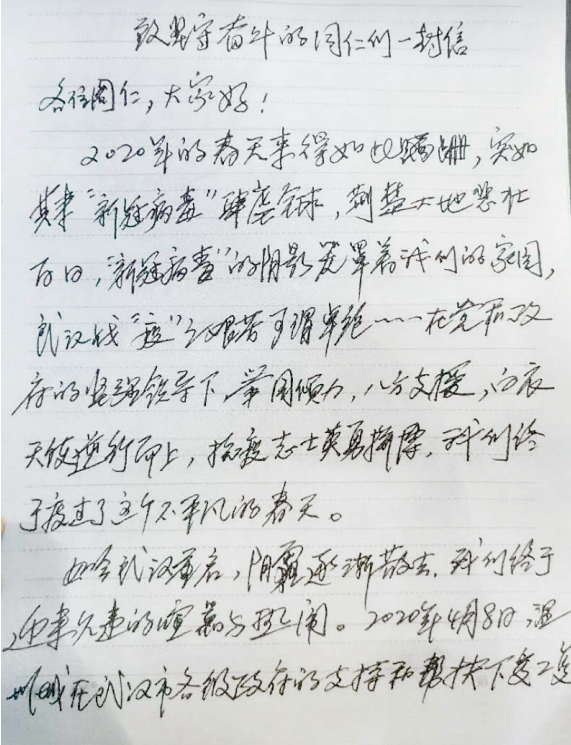 致坚守奋斗的同仁们一封信
各位同仁，大家好！
2020年的春天来得如此蹒跚，突如
其来“新冠病毒”肆虐全球，荆楚大地悲壮
百日，“新冠病毒”的阴影笼罩着我们的家园，
武汉战“疫”之艰苦可谓卓绝……在党和政
府的坚强领导下，举国倾力，八方支援，白衣
天使逆行而上，抗疫志士英勇搏击，我们终
于度过了这个不平凡的春天。
如今武汉重启，阴霾逐渐散去，我们终于
迎来久违的喧嚣与热闹。2020年4月8日，
在武汉市各级政府的支持和帮扶下复工复